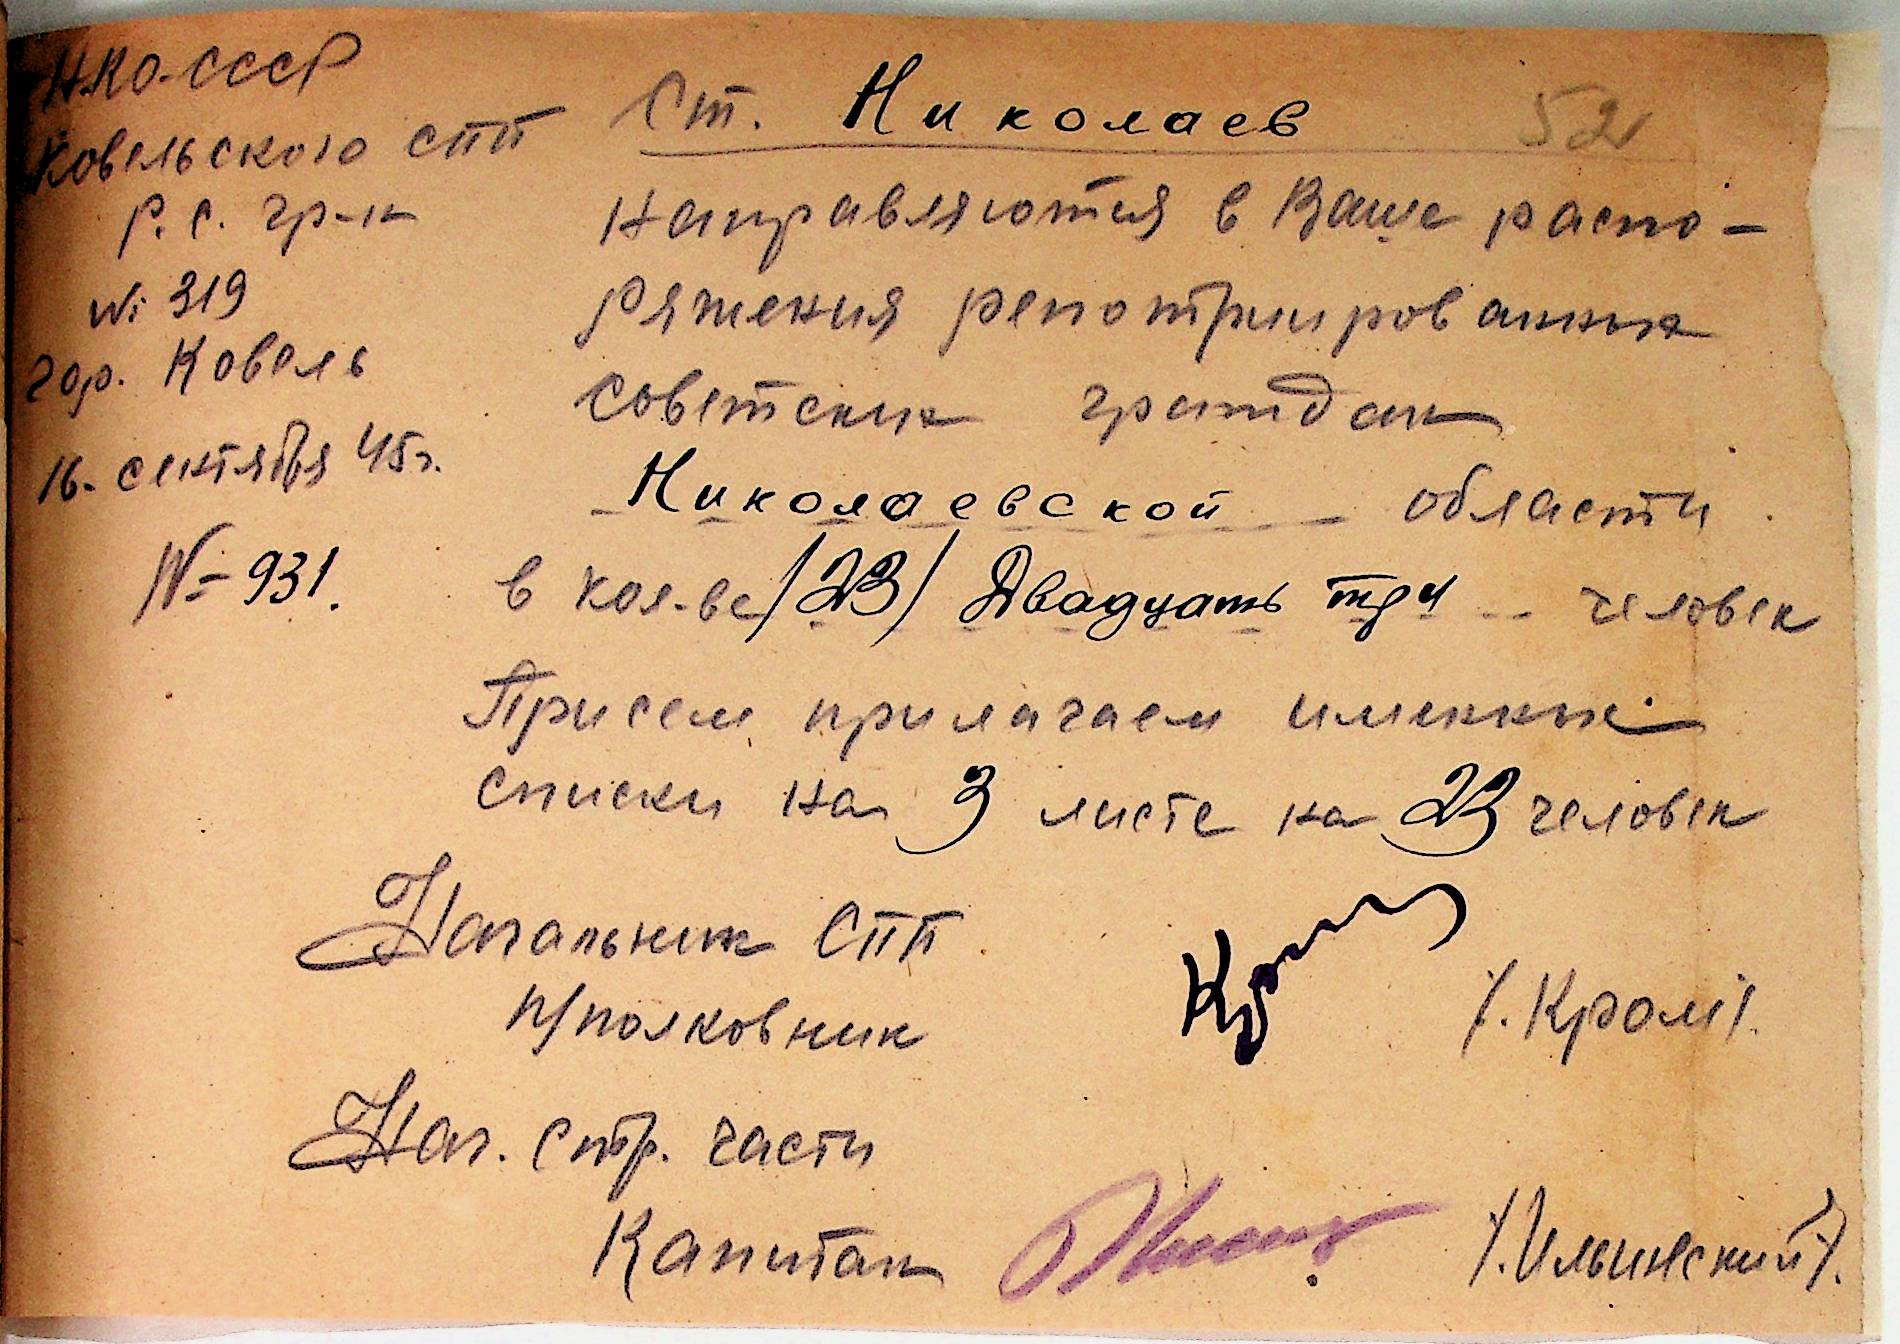 НКО-СССР
Ковельского СПП
р. с. гр-н
№ 319
гор. Ковель
16. сентября 45г.
№ 931.
Ст. Николаев
52
Направляются в Ваше распо-
ряжения репотриированных
советских граждан
Николаевской области
в кол-ве /23/ Двадцать три человек
Присем прилагаем именных
списки на 3 листе на 23 человек
Начальник СПП
п/полковник /. Кроль/.
Нач. стр. части
Капитан /. Ильинский/.